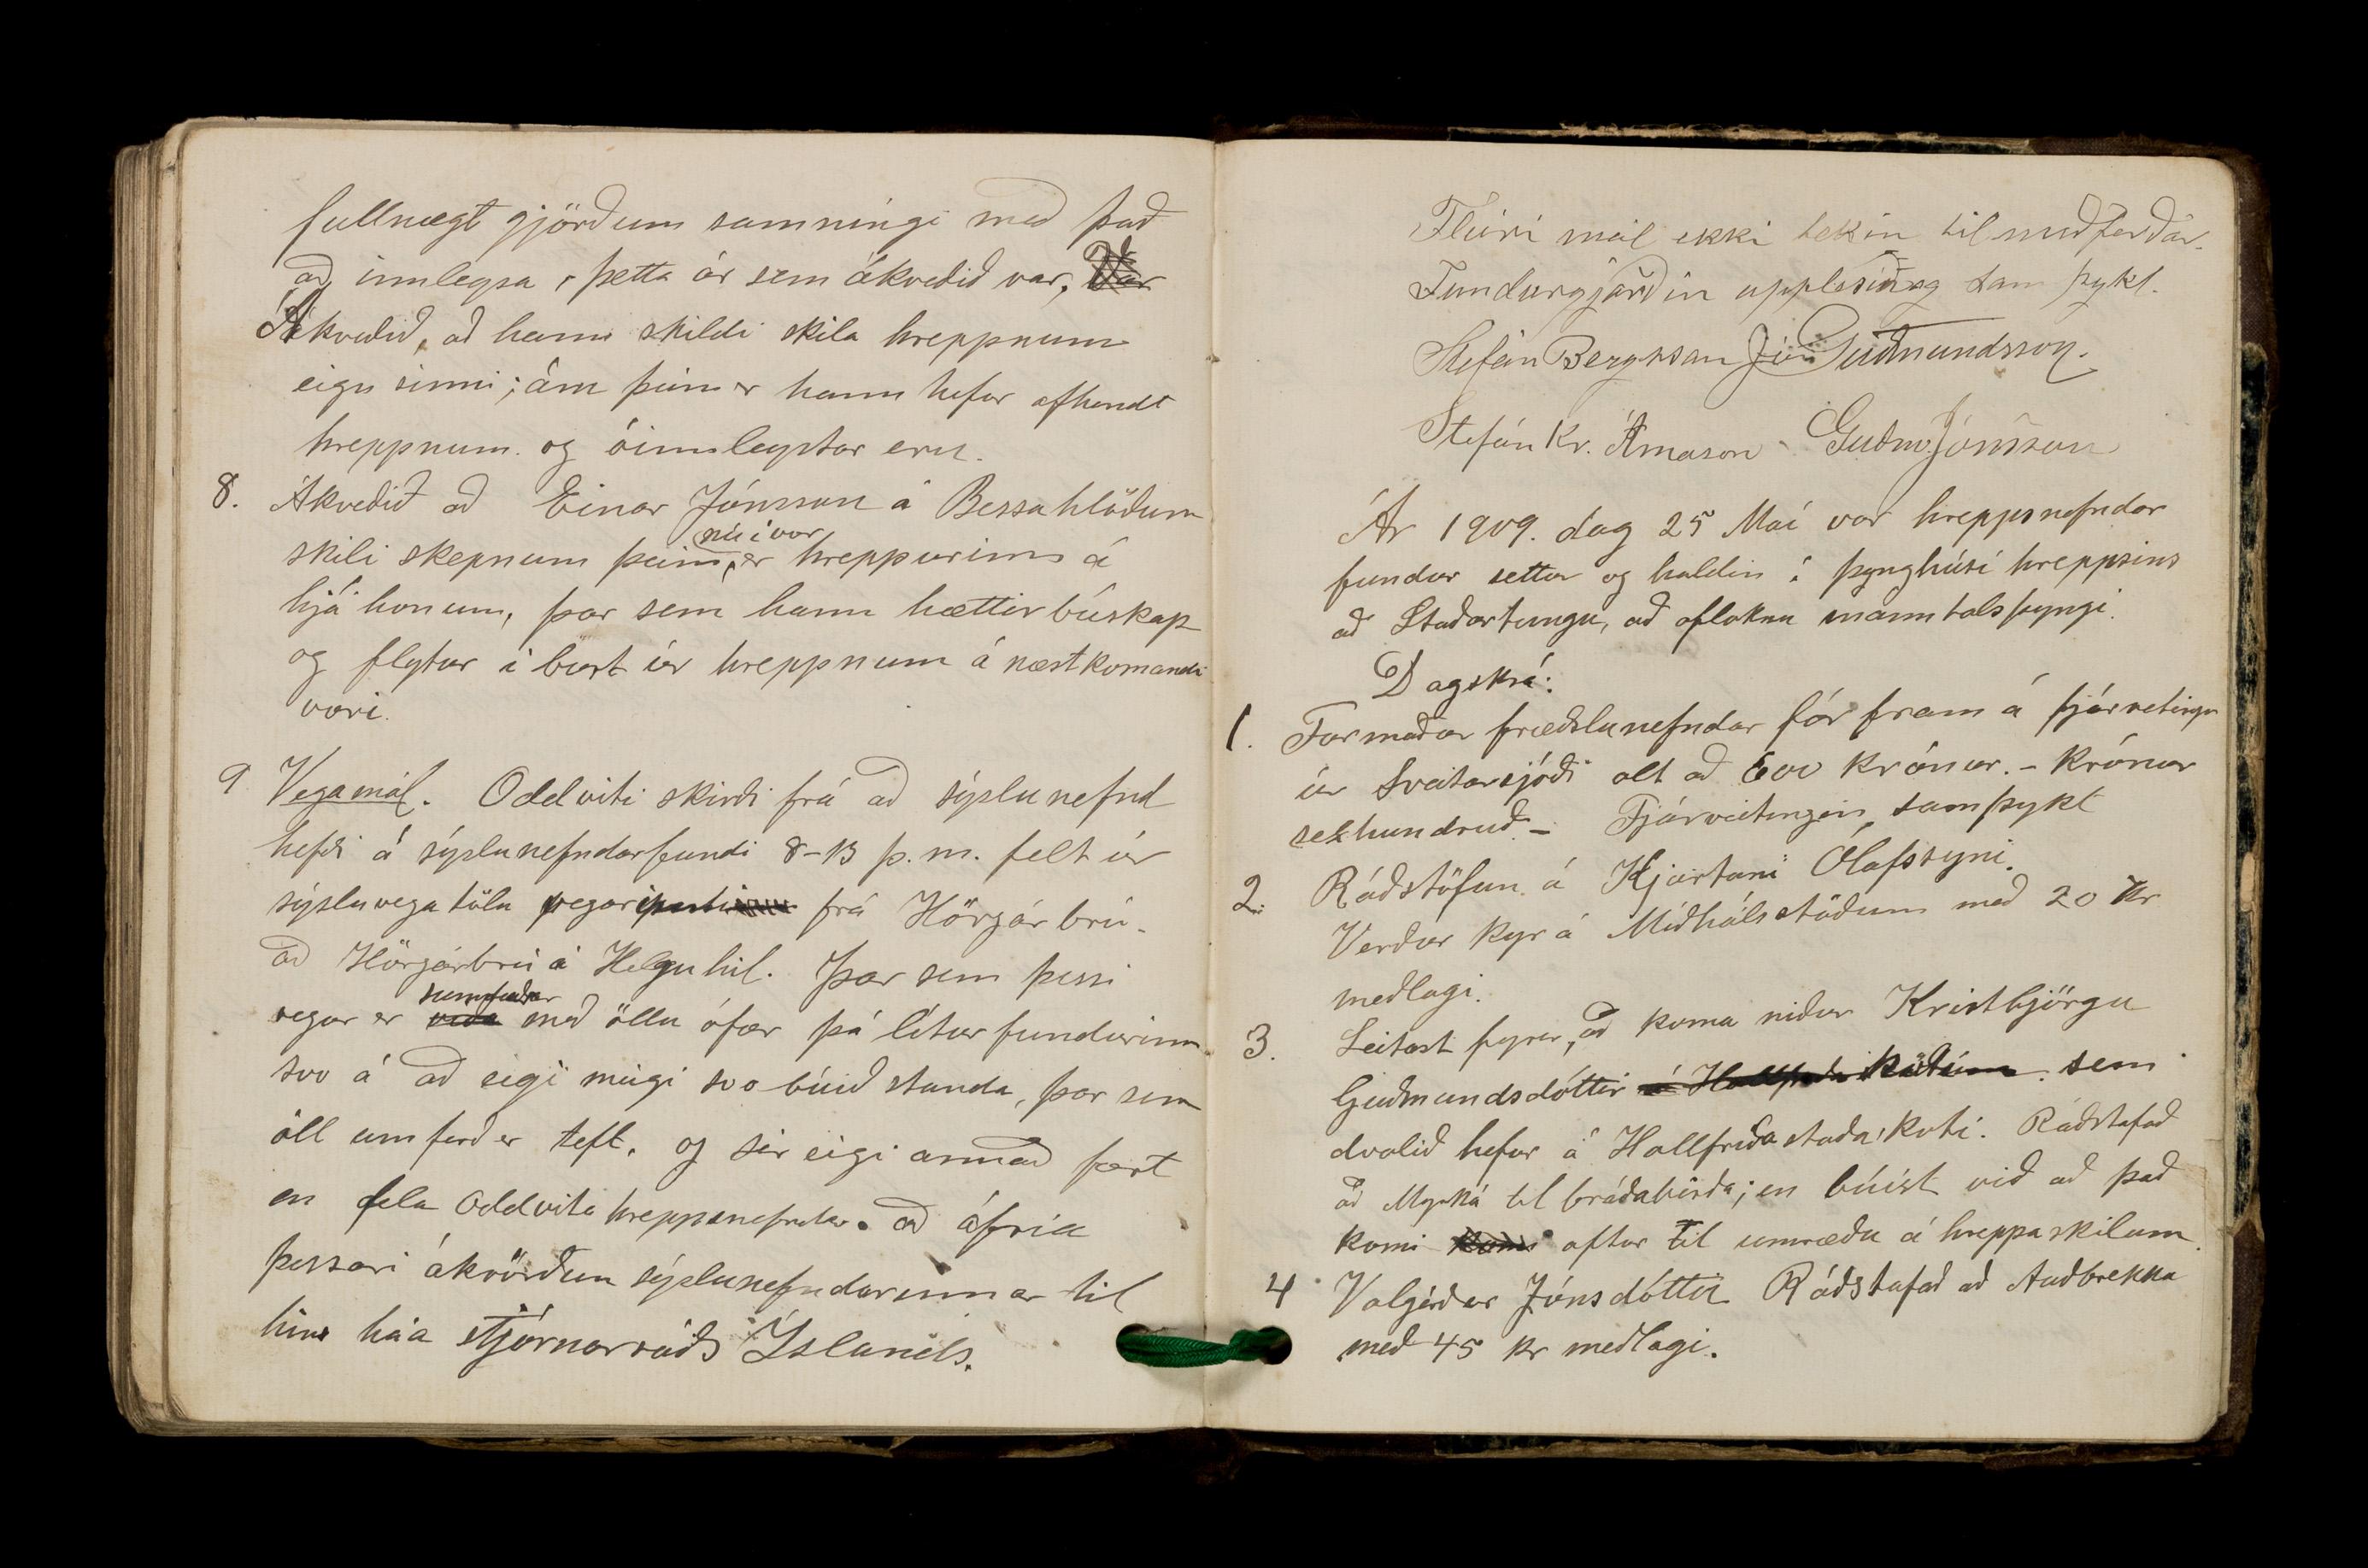 fullnægt gjörðum samningi með það
að innleysa, þetta ár sem ákveðið var, Var
Ákveðið, að hann skildi skila hreppnum
eign sinni; ám þeim er hann hefur afhendt
hreppnum. og óinnleystar eru.
8. Ákveðið að Einar Jónsson á Bessahlöðum
nú í vor
skili skepnum þeim, er hreppurinn á
hjá honum, þar sem hann hættir búskap
og flytur í burt úr hreppnum á næstkomandi
vori.
9 Vegamál. Oddviti skirði frá að sýslunefnd
hefði á sýslunefndarfundi 8-13 þ. m. felt úr
sýsluvega tölu frá Hörgárbrú
að Hörgárbrú á Helguhil. Þar sem þessi
sumstaðar
vegur er víða með öllu ófær þá lítur fundurinn
svo á að eigi meigi svo búið standa, þar sem
öll umferð er teft. og sér eigi annað fært
en fela Oddvita hreppsnefndar. að áfría
þessari ákvörðun sýslunefndarinnar til
hins háa stjórnarráðs Íslands.
Fleiri mál ekki tekin til meðferðar.
Fundargjörðin upplesin og sam þykt.
Stefán Bergsson Jón Guðmundsson.
Stefán Kr. Árnason Guðm. Jónsson
Ár 1909. dag 25 Maí var hreppsnefndar
fundur settur og haldin í þynghúsi hreppsins
að Staðartungu, að afloknu manntalsþyngi.
Dagskrá:
1. Formaður fræðslunefndar fór fram á fjárveitingu
úr Sveitarsjóði alt að 600 krónur. - Krónur
sexhundruð. - Fjárveitingin, samþykt
2. Ráðstöfun á Kjartani Ólafssyni.
Verður kyr á Miðhálsstöðum með 20 kr
meðlagi.
3. Leitast fyrir, að koma niður Kristbjörgu
Guðmundsdóttir á Hallfríða kotinu sem
dvalið hefur á Hallfríðastaða,koti. Ráðstafað
að Myrká til bráðabirða; en búist við að það
komi komi aftur til umræðu á hreppaskilum.
4 Valgerður Jónsdóttir Ráðstafað að Auðbrekka
með 45 kr meðlagi.